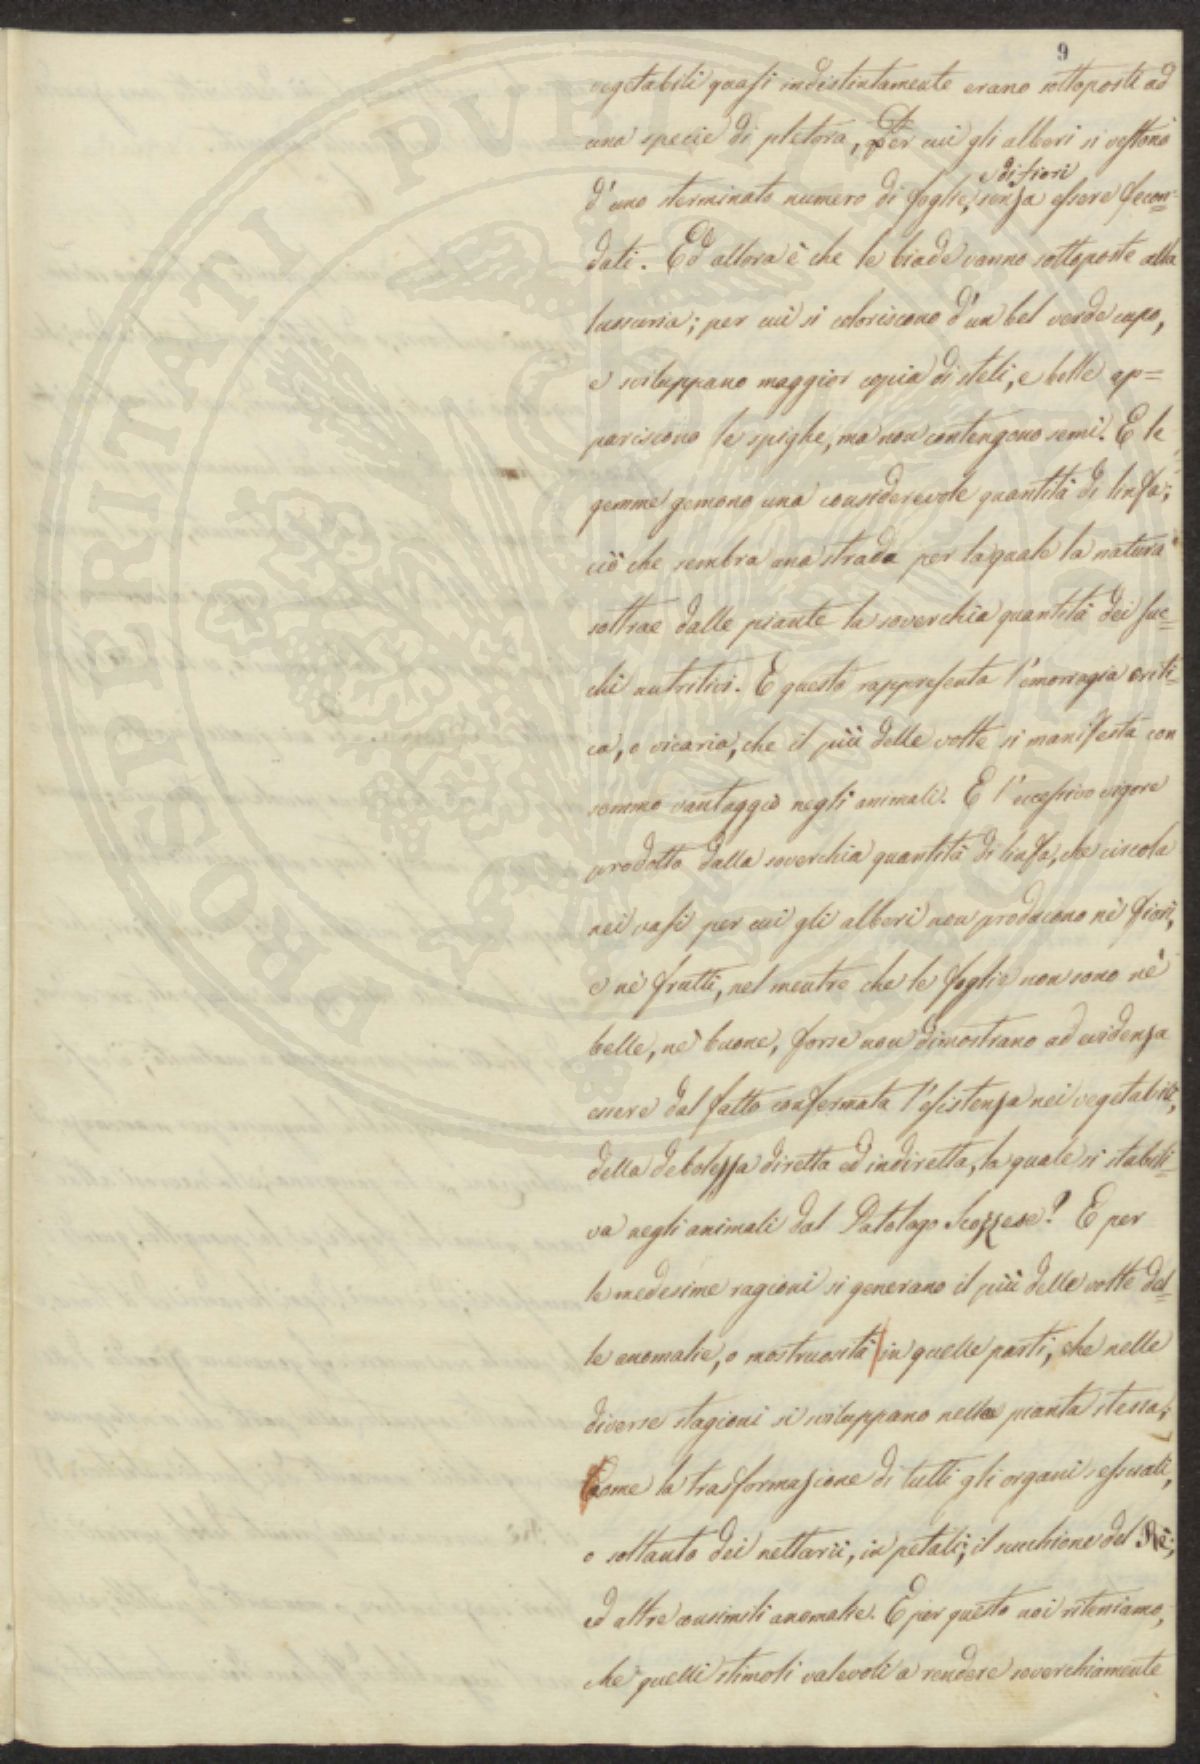 9
vegetabili quasi indistintamente erano sottoposti ad
una specie di pletora, Per cui gli alberi si vestono
e di fiori
d'uno sterminato numero di foglie, senza essere fecon=
dati. Ed allora è che le biade vanno sottoposte alla
lussuria; per cui si coloriscono d'un bel verde cupo,
e sviluppano maggior copia di steli, e belle ap=
pariscono le spighe, ma non contengono semi. E le
gemme gemono una considerevole quantità di linfa;
ciò che sembra una strada per la quale la natura
sottrae dalle piante la soverchia quantità dei suc=
chi nutritivi. E questo rappresenta l'emorragia criti=
ca, o vicaria, che il più delle volte si manifesta con
sommo vantaggio negli animali. E l'eccessivo vigore
prodotto dalla soverchia quantità di linfa, che circola
nei vasi per cui gli alberi non producono nè fiori,
e nè frutti, nel mentre che le foglie non sono nè
belle, nè buone, forse non dimostrano ad evidenza
essere dal fatto confermata l'esistenza nei vegetabili,
della debolezza diretta ed indiretta, la quale si stabili=
va negli animali dal Patologo Scozzese? E per
le medesime ragioni si generano il più delle volte del=
le anomalie, o mostruosità in quelle parti, che nelle
diverse stagioni si sviluppano nella pianta stessa;
Come la trasformazione di tutti gli organi sessuali,
o soltanto dei nettarii, in petali; il succhione del Rè;
ed altre consimili anomalie. E per questo noi riteniamo,
che quelli stimoli valevoli a rendere soverchiamente
PROSPERITATI PVBLICAE